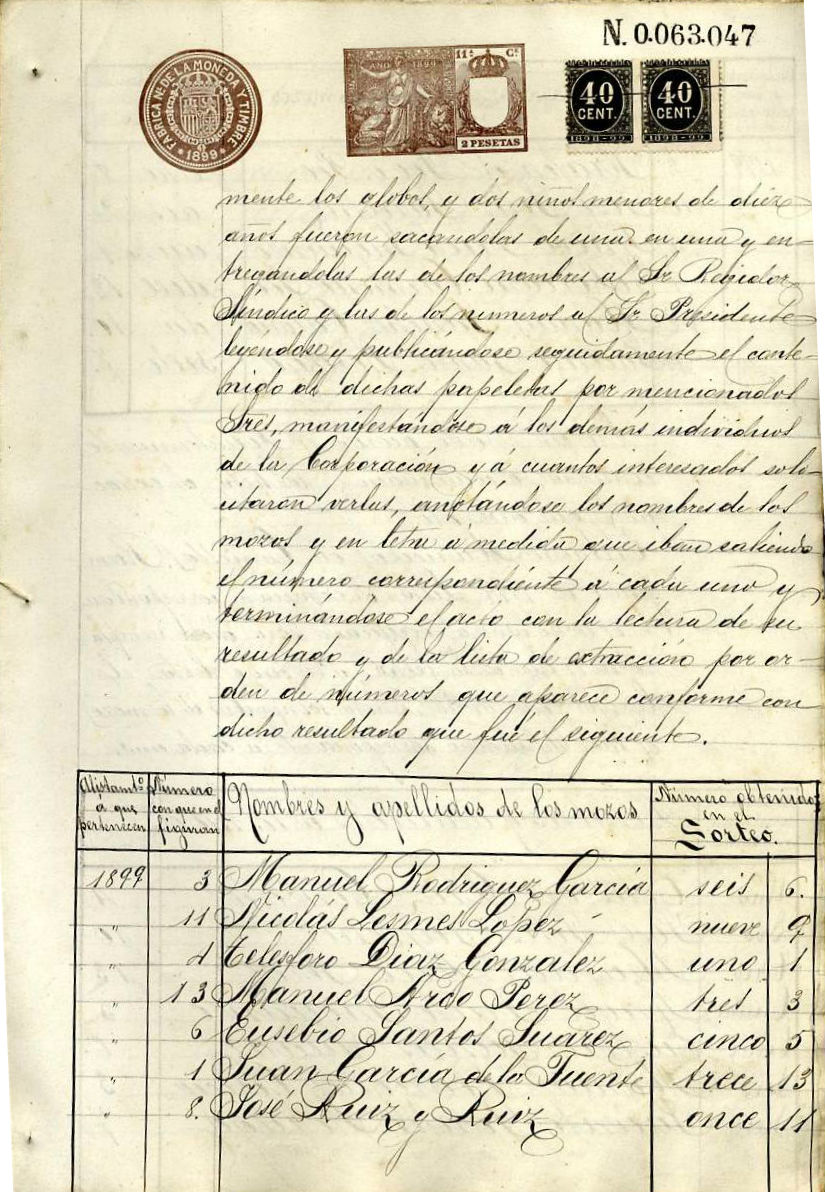 N. 0.063.047
FABRICA NL. DE LA MONEDA Y TIMBRE
* 1899 *
AÑO 1899
11ª Cª
2 PESETAS
40 CENT.
1898-99
40 CENT.
1898-99
mente los globos, y dos niños menores de diez
años fueron sacandolas de una en una y en-
tregandólas las de los nombres al Sr Regidor
Síndico y las de los numeros al Sr Presidente
leyéndose y publicándose seguidamente el conte-
nido de dichas papeletas por mencionados
Tres, manifestándose á los demás individuos
de la Corporación y á cuantos interesados soli-
citaron verlas, anotándose los nombres de los
mozos y en letra á medida que iban saliendo
el número correspondiénte á cada uno y
terminándose el acto con la lectura de su
resultado y de la lista de extracción por or-
den de números que aparece conforme con
dicho resultado que fué el siguiente.
Alistamtº á que pertenecen
Número con que en el figuran
Nombres y apellidos de los mozos
Número obtenido en el Sorteo.
1899 3 Manuel Rodriguez García seis 6.
" 11 Nicolás Lesmes López nueve 9
" 4 Telesforo Diaz Gonzalez uno 1
" 13 Manuel Arco Perez tres 3
" 6 Eusebio Santos Suarez cinco 5
" 1 Juan García de la Fuente trece 13
" 8. José Ruiz y Ruiz once 11